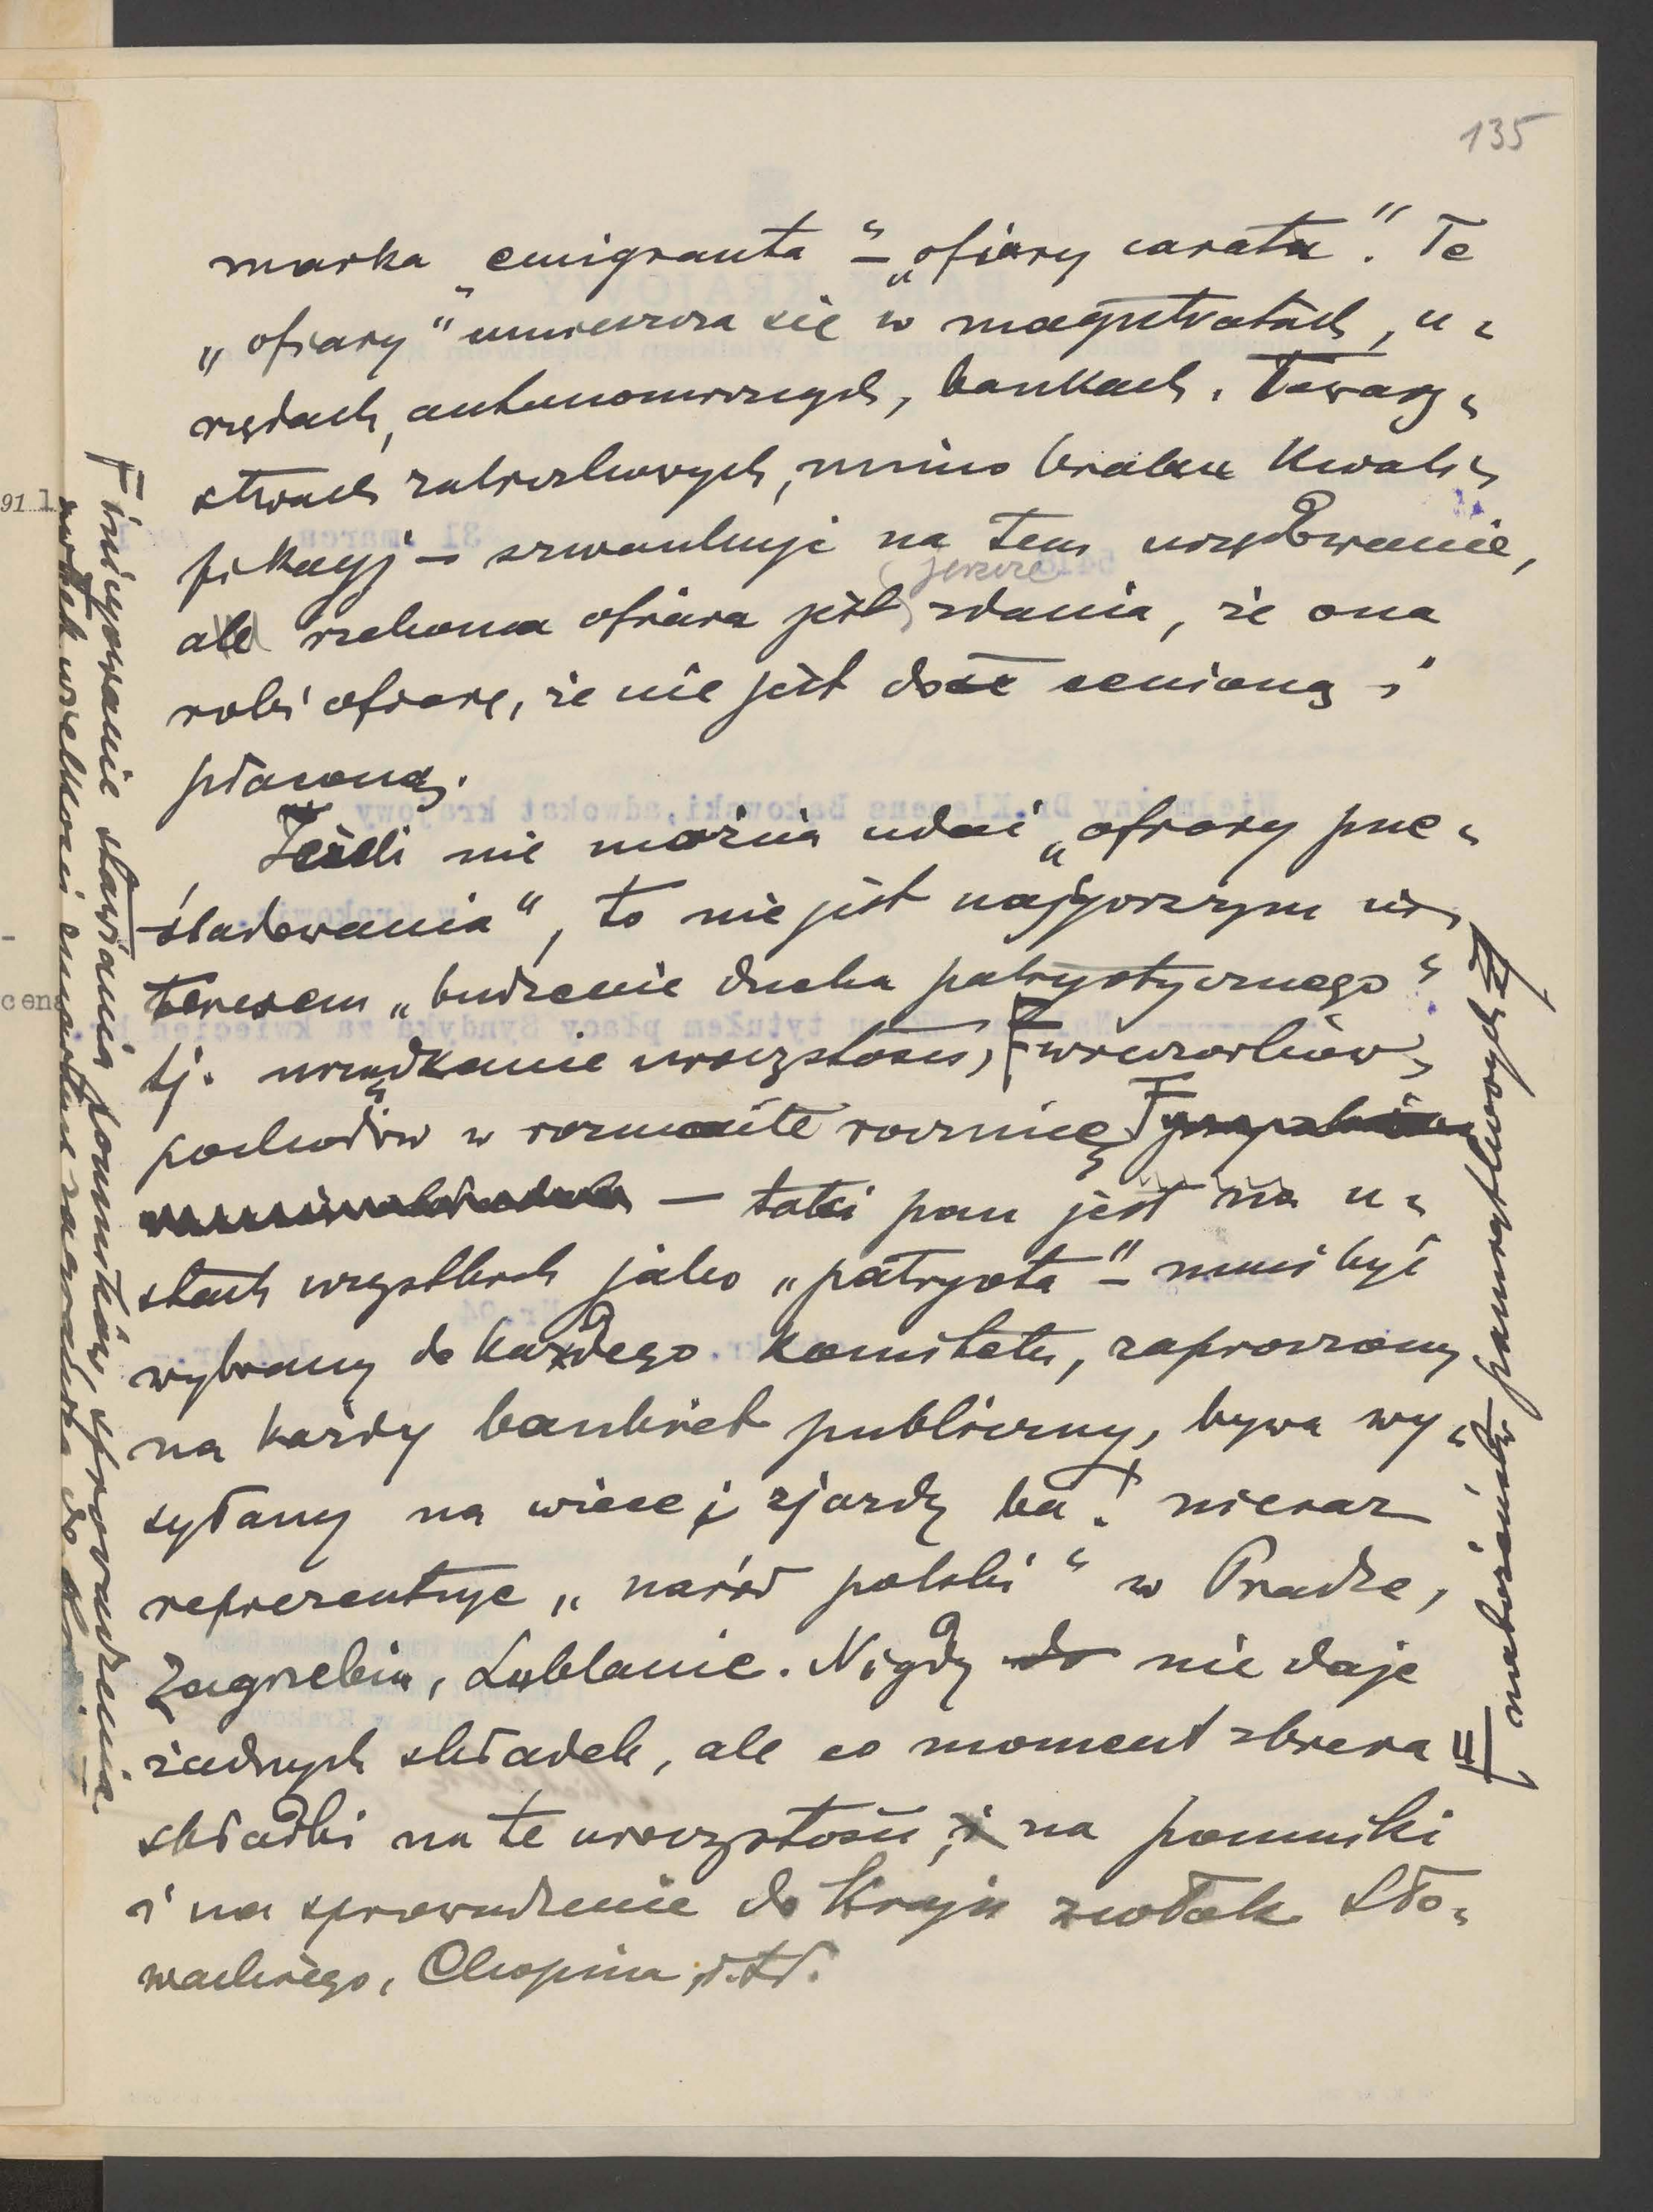 135
marka „emigranta“ – „ofiary carata“. Te
„ofiary“ umieszcza się w magistratach, u=
rzędach autonomicznych, bankach, Towarz=
stwach zaliczkowych, mimo braku kwali=
fikacyj – szwankuje na tem urzędowanie,
ale rzekoma ofiara jest (jeszcze) zdania, że ona
robi ofiarę, że nie jest dość cenioną i
płaconą.
Jeżeli nie można udać „ofiary prze=
śladowania“, to nie jest najgorszym in=
teresem „budzenie ducha patryotycznego“
tj. urządzanie uroczystości, wieczorków,
pochodów w rozmaite rocznice
– taki pan jest na u=
stach wszystkich jako „patryota“ – musi być
wybrany do każdego komitetu, zaproszony
na każdy bankiet publiczny, bywa wy=
syłany na wiece i zjazdy ba! nieraz
reprezentuje „naród polski“ w Pradze,
Zagrzebiu, Lublanie. Nigdy do nie daje
żadnych składek, ale co moment zbiera
składki na te uroczystości, i na pomniki
i na sprowadzenie do kraju zwłok Sło=
wackiego, Chopina i.t.d.
F inicyowanie stawiania pomników, sprowadzenia
zwłok wielkości zmarłych
nabożeństw pamiątkowych
91 1
cena